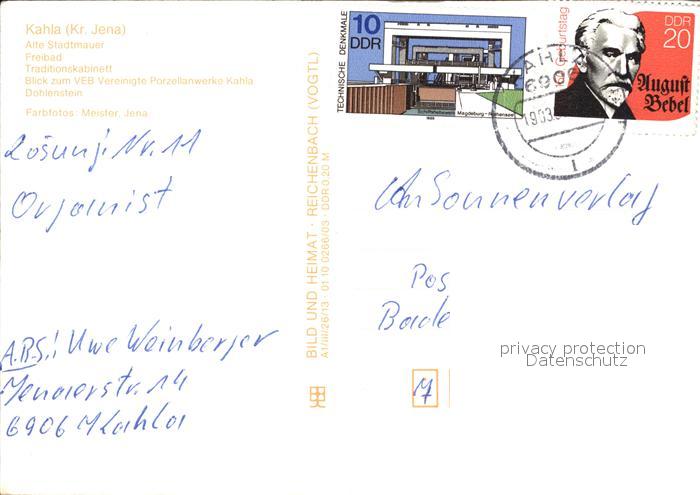 Kahla (Kr. Jena)
Alte Stadtmauer
Freibad
Traditionskabinett
Blick zum VEB Vereinigte Porzellanwerke Kahla
Dohlenstein
Farbfotos: Meister, Jena
Lösung: Nr. 11
Organist
A.B.S.: Uwe Weinberger
Jenaerstr. 14
6906 Kahla
BILD UND HEIMAT · REICHENBACH (VOGTL)
A1/III/26/13 · 01 10 0266/03 · DDR 0,20 M
TECHNISCHE DENKMALE
10
DDR
Magdeburg-Rothensee
Geburtstag
DDR
20
August
Bebel
19.03.
An Sonnenverlag
Pos
Bade
privacy protection
Datenschutz